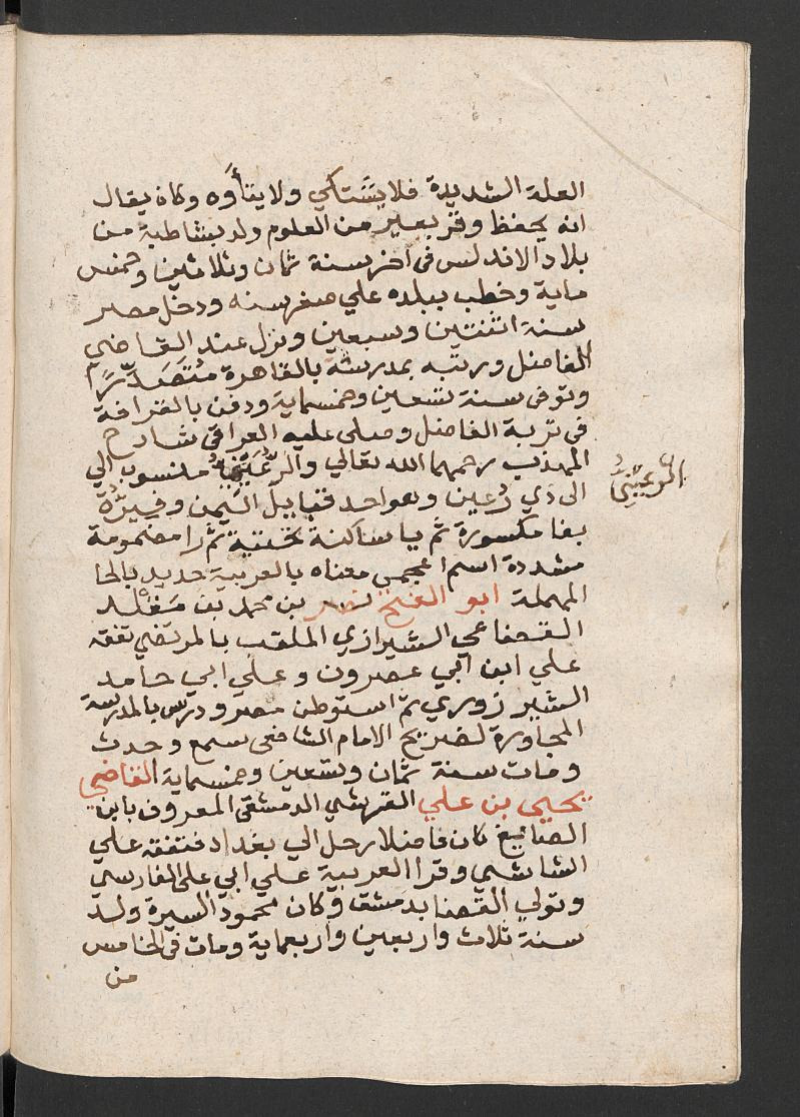 العلة الشديدة فلا يشتكي ولا يتأوه وكان يقال
انه يحفظ وقر بعير من العلوم ولد بشاطبة من
بلاد الاندلس فى اخر سنة ثمان وثلاثين وخمس
ماية وخطب ببلده علي صغر سنه ودخل مصر
سنة اثنتين وسبعين ونزل عند القاضي
الفاضل ورتبه بمدرسته بالقاهرة مُتَصَدِّرًا
وتوفى سنة تسعين وخمسماية ودفن بالقرافة
فى تربة الفاضل وصلى عليه العراقي شارح
المهذب رحمهما الله تعالي والرُّعَيني منسوب الي
الرُّعَيْني
الى ذي رُعين وهو احد قبايل اليمن وفِيرُّه
بفا مكسورة ثم يا ساكنة تحتية ثم را مضمومة
مشددة اسم اعجمي معناه بالعربية حديد بالحا
المهملة ابو الفتح نصر بن محمد بن مقلد
القضاعي الشيرازي الملقب بالمرتضي تفقه
علي ابن ابي عصرون و علي ابي حامد
الشيرزوري ثم استوطن مصر ودرس بالمدرسة
المجاورة لضريح الامام الشافعى سمع وحدث
ومات سنة ثمان وتسعين وخمسماية القاضي
يحيي بن علي القرشي الدمشقى المعروف بابن
الصايغ كان فاضلا رحل الي بغداد فتفقه علي
الشاشي وقرا العربية علي ابي على الفارسي
وتولي القضا بدمشق وكان محمود السيرة ولد
سنة ثلاث واربعين واربعماية ومات فى الخامس
من